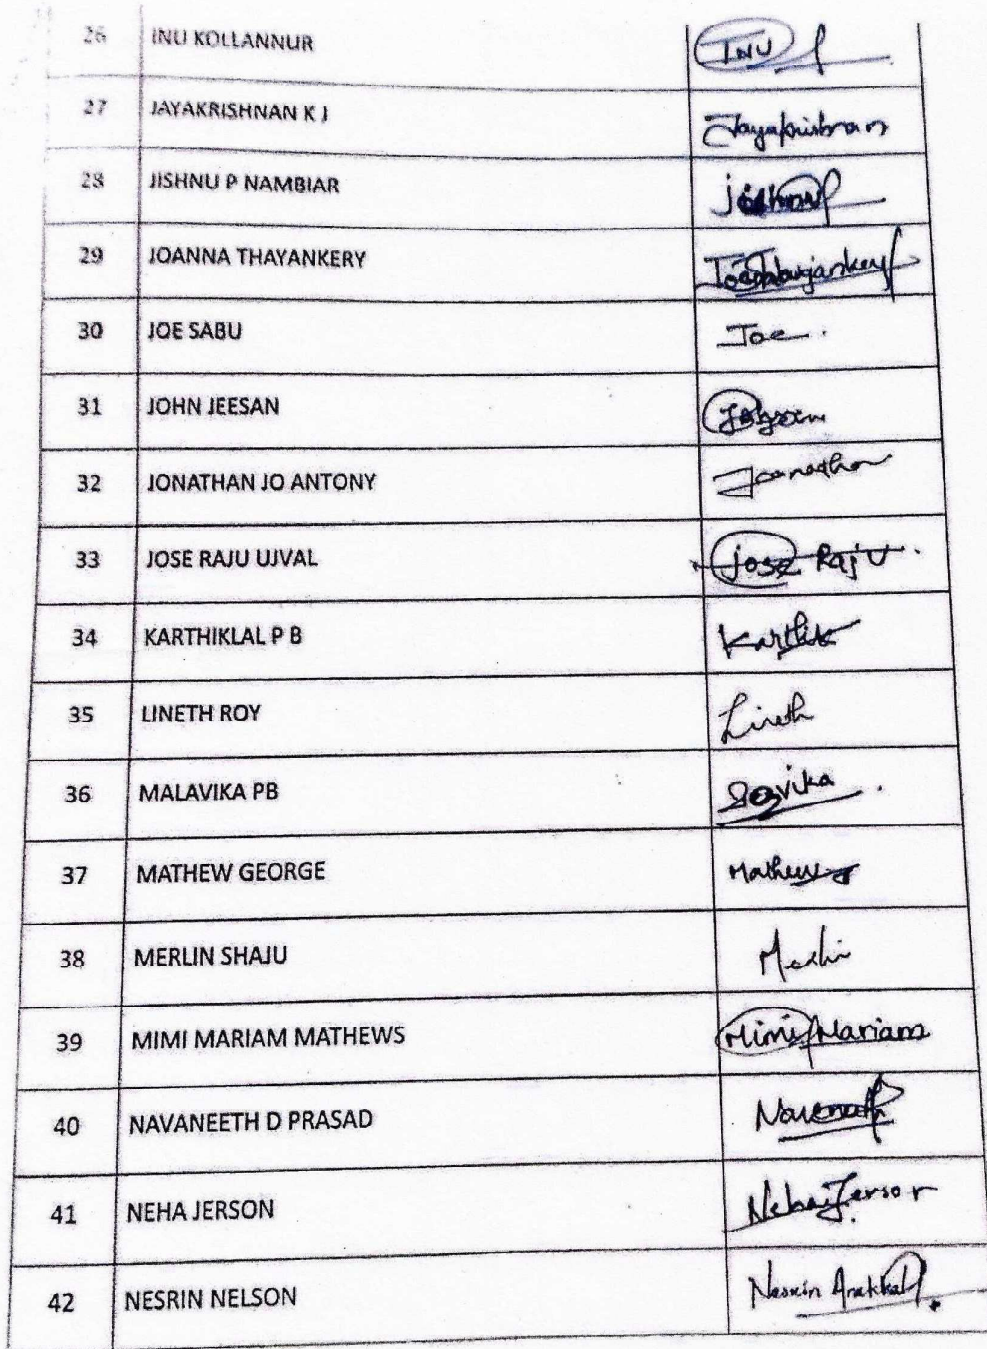 26 INU KOLLANNUR INU
27 JAYAKRISHNAN K J Jayakrishnan
28 JISHNU P NAMBIAR jishnu
29 JOANNA THAYANKERY
30 JOE SABU Joe.
31 JOHN JEESAN
32 JONATHAN JO ANTONY
33 JOSE RAJU UJVAL jose Raju.
34 KARTHIKLAL P B Karthik
35 LINETH ROY Lineth
36 MALAVIKA PB
37 MATHEW GEORGE Mathew
38 MERLIN SHAJU Merlin
39 MIMI MARIAM MATHEWS Mimi Mariam
40 NAVANEETH D PRASAD
41 NEHA JERSON Neha Jerson
42 NESRIN NELSON Nesrin Arakkal